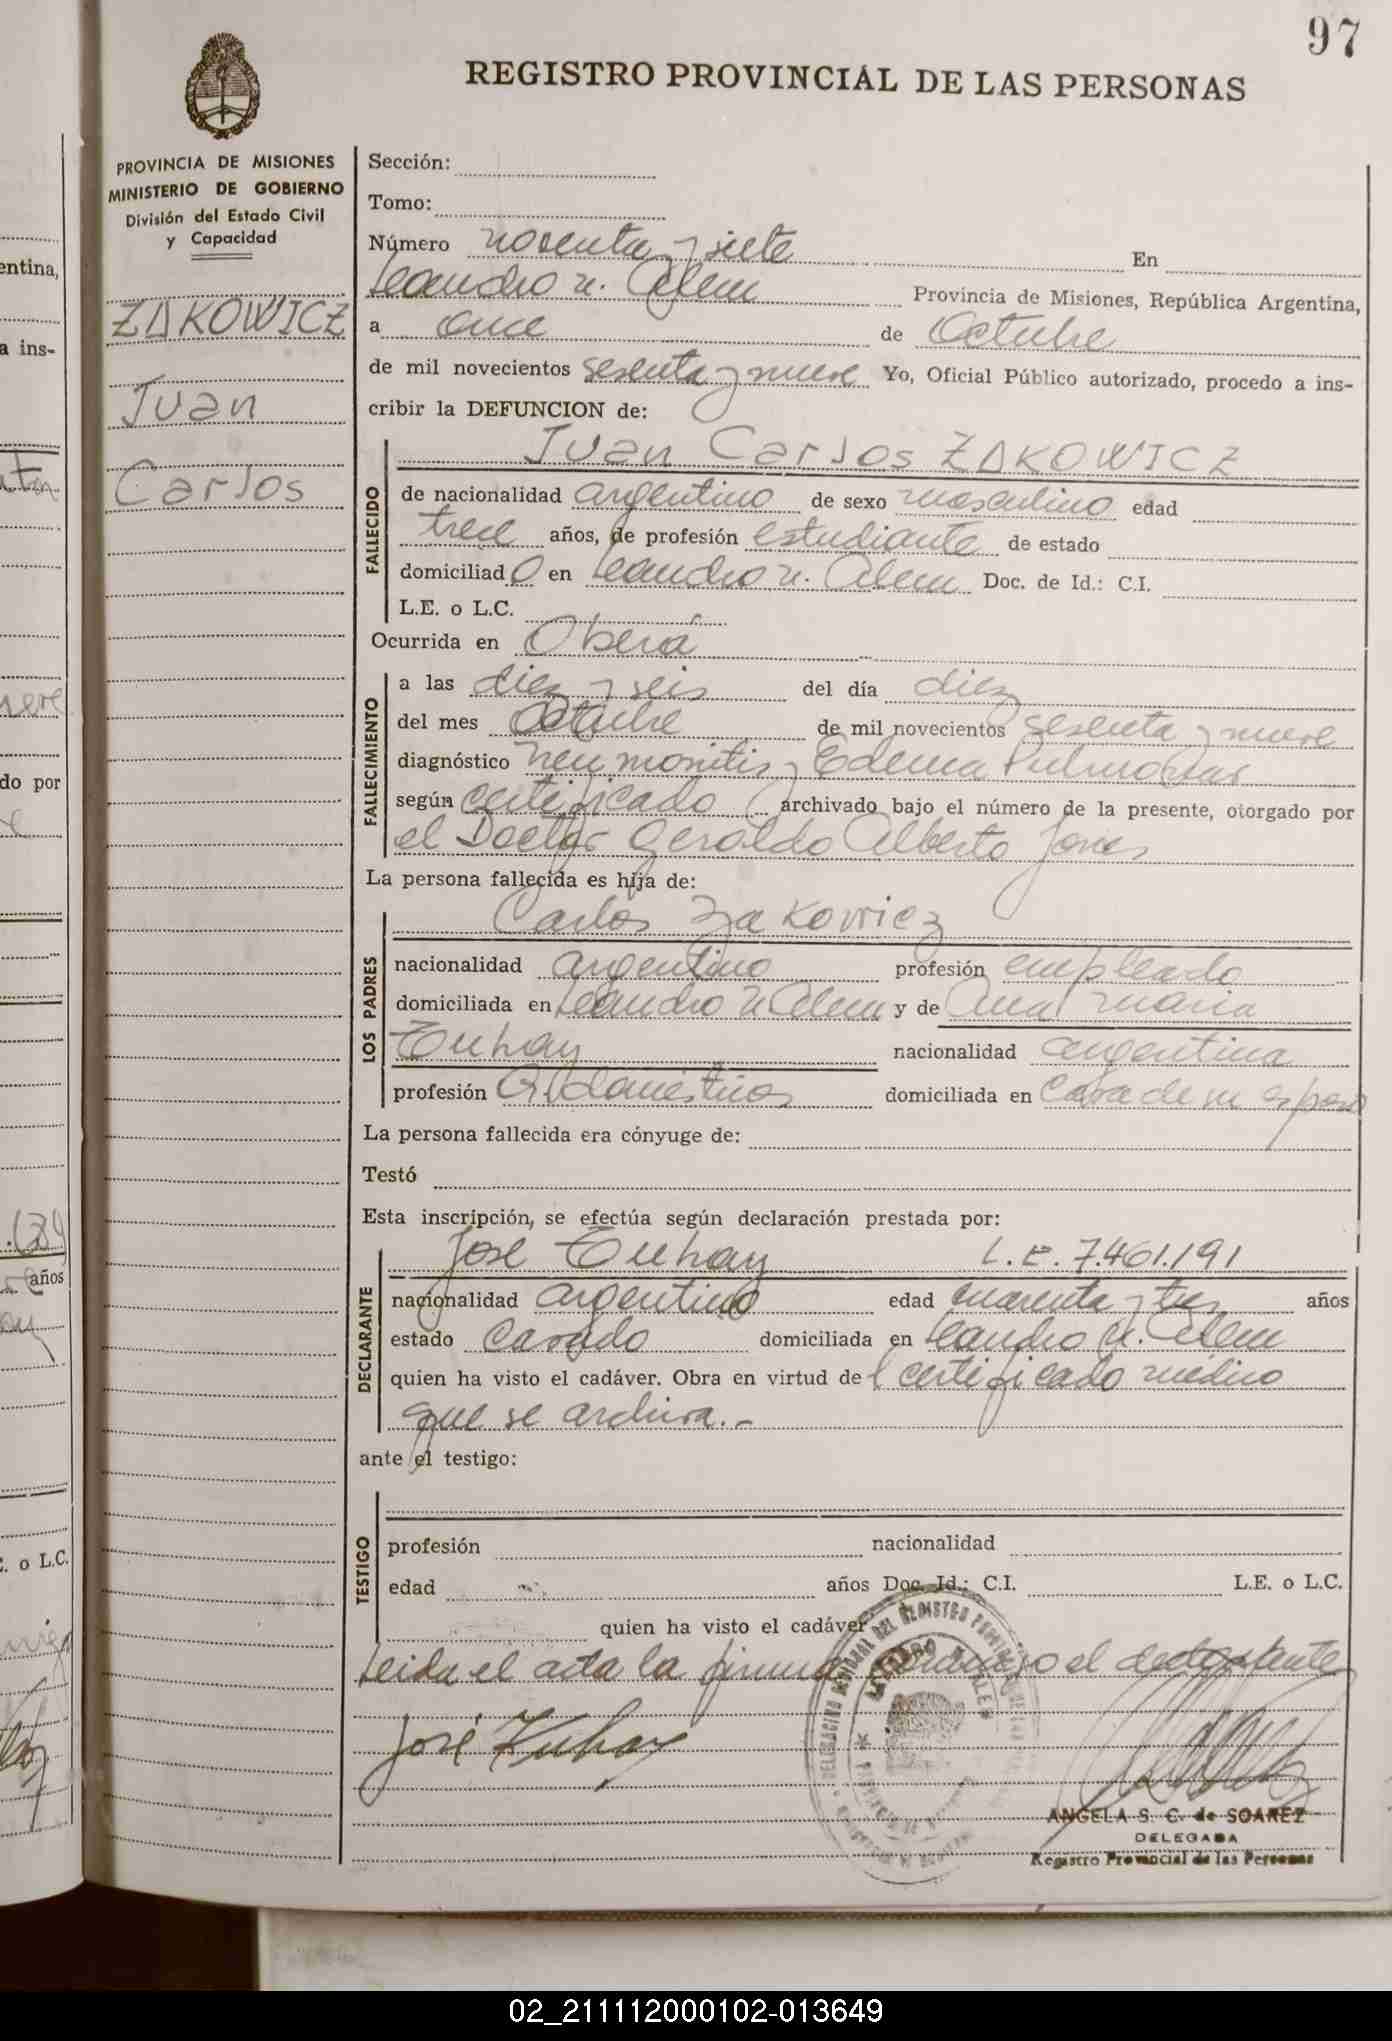 97
REGISTRO PROVINCIAL DE LAS PERSONAS
PROVINCIA DE MISIONES
MINISTERIO DE GOBIERNO
División del Estado Civil
y Capacidad
ZAKOWICZ
Juan
Carlos
Sección:
Tomo:
Número noventa y siete En
Leandro N. Alem Provincia de Misiones, República Argentina,
a once de Octubre
de mil novecientos sesenta y nueve Yo, Oficial Público autorizado, procedo a ins-
cribir la DEFUNCION de:
FALLECIDO
Juan Carlos ZAKOWICZ
de nacionalidad argentino de sexo masculino edad
trece años, de profesión estudiante de estado
domiciliado en Leandro N. Alem Doc. de Id.: C.I.
L.E. o L.C.
Ocurrida en Oberá
FALLECIMIENTO
a las diez y seis del día diez
del mes Octubre de mil novecientos sesenta y nueve
diagnóstico Neumonitis y Edema Pulmonar
según certificado archivado bajo el número de la presente, otorgado por
el Doctor Geraldo Alberto Jones
La persona fallecida es hija de:
LOS PADRES
Carlos Zakowicz
nacionalidad argentino profesión empleado
domiciliada en Leandro N Alem y de Ana Maria
Tuhay nacionalidad argentina
profesión Q. domésticos domiciliada en casa de su esposo
La persona fallecida era cónyuge de:
Testó
Esta inscripción, se efectúa según declaración prestada por:
DECLARANTE
José Tuhay L.E. 7.461.191
nacionalidad argentino edad cuarenta y tres años
estado casado domiciliada en Leandro N. Alem
quien ha visto el cadáver. Obra en virtud del certificado médico
que se archiva.-
ante el testigo:
TESTIGO
profesión nacionalidad
edad años Doc. Id.: C.I. L.E. o L.C.
quien ha visto el cadáver
Leida el acta la firma conmigo el declarante
José Tuhay
ANGELA S. C. de SOAREZ
DELEGADA
Registro Provincial de las Personas
02_211112000102-013649